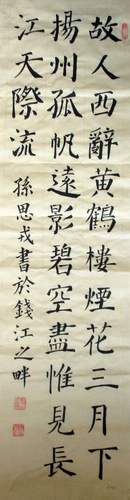 故人西辭黄鶴樓煙花三月下
揚州孤帆遠影碧空盡惟見長
江天際流
孫思戎書於錢江之畔